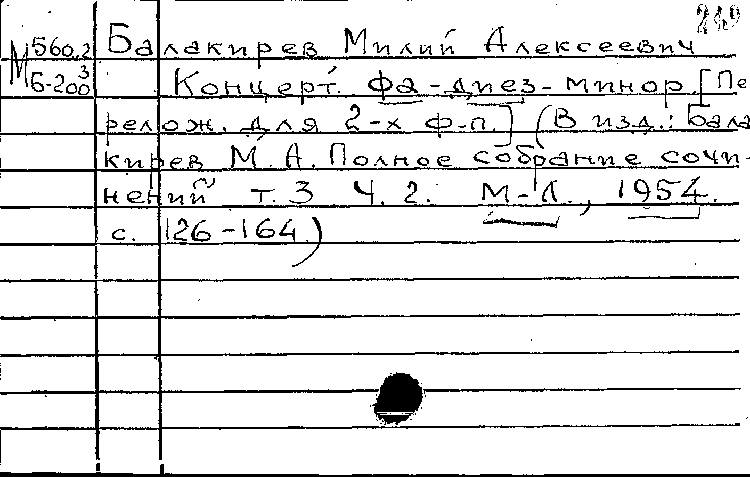 249
М560.2 Балакирев Милий Алексеевич
Б-200³ Концерт. Фа-диез-минор. [Пе
релож. для 2-х ф-п.] (В изд.: Бала
кирев М.А. Полное собрание сочи-
нений т. 3 Ч. 2. М-Л., 1954.
с. 126-164.)